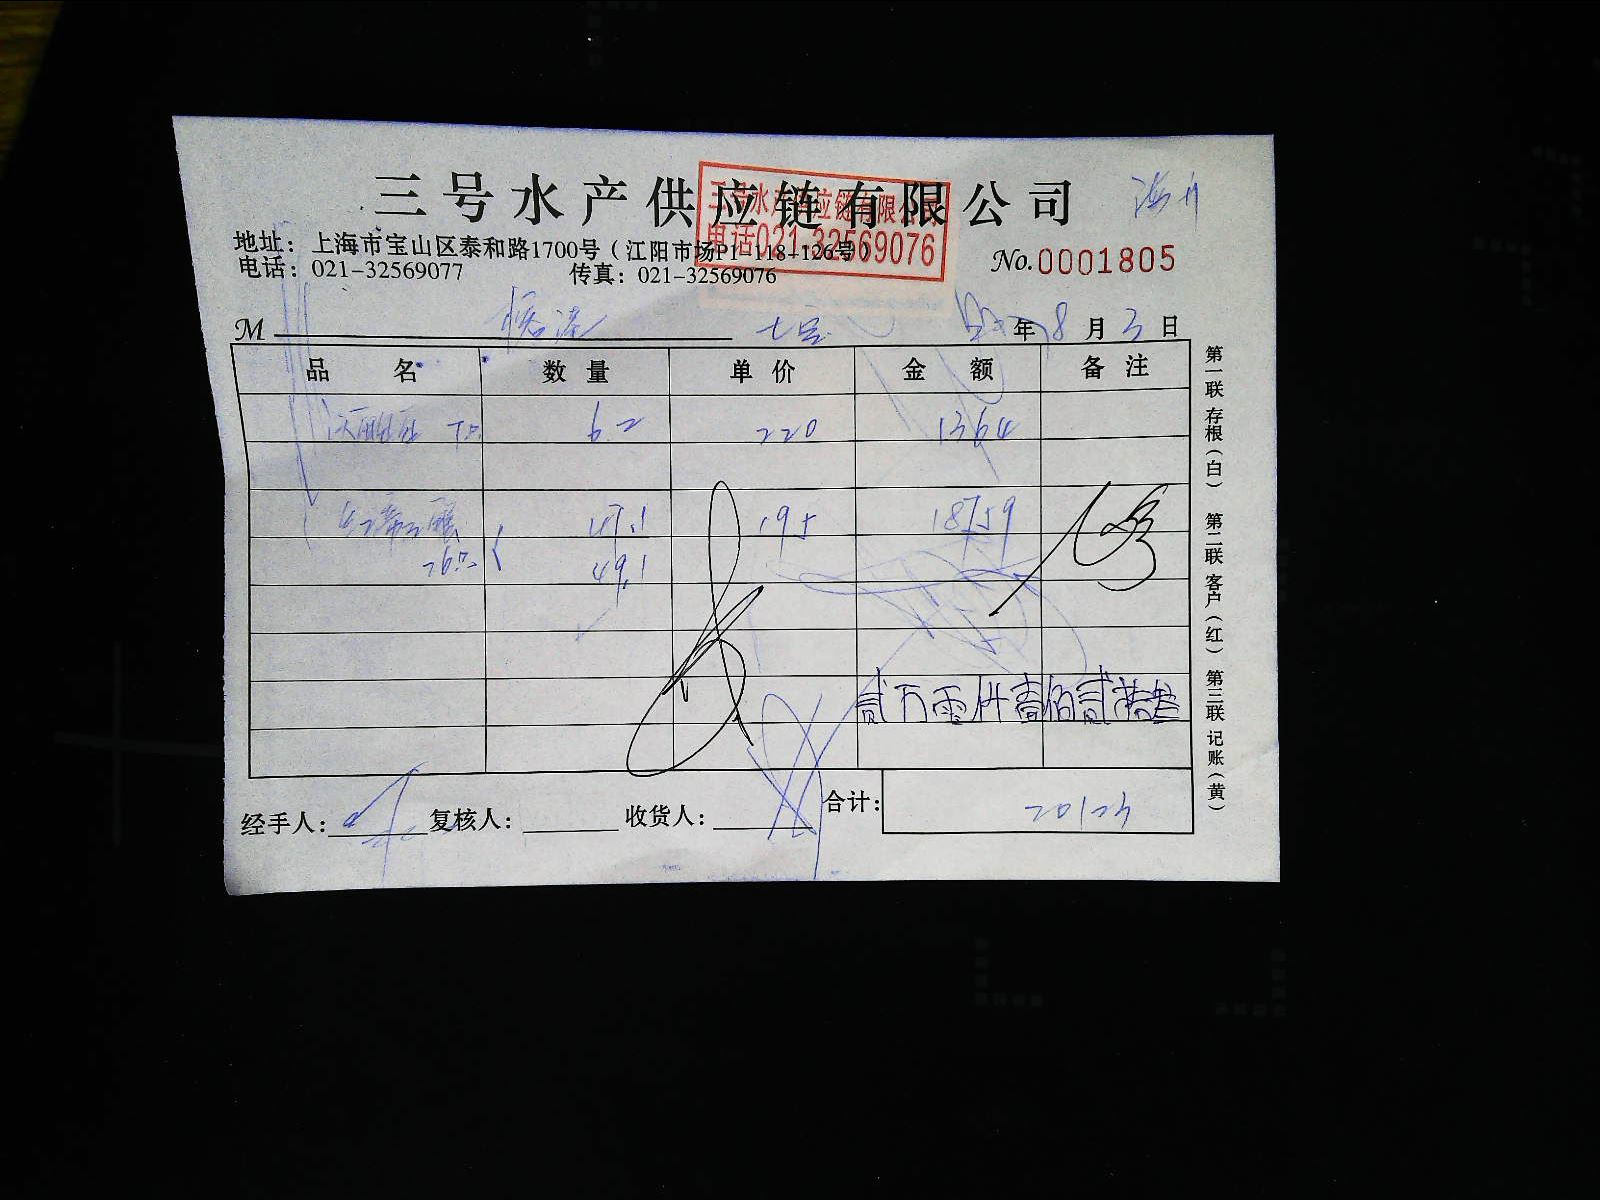 三号水产供应链有限公司
三号水产供应链有限公司
电话021-32569076
地址：上海市宝山区泰和路1700号（江阳市场P1-118-126号）
电话：021-32569077 传真：021-32569076
No.0001805
M 七号 年 8 月 3 日
品名 数量 单价 金额 备注
6.2 220 1364
47.1 195 18759
26只 49.1
贰万零仟壹佰贰拾叁
合计： 20123
经手人： 复核人： 收货人：
第一联 存根（白） 第二联 客户（红） 第三联 记账（黄）